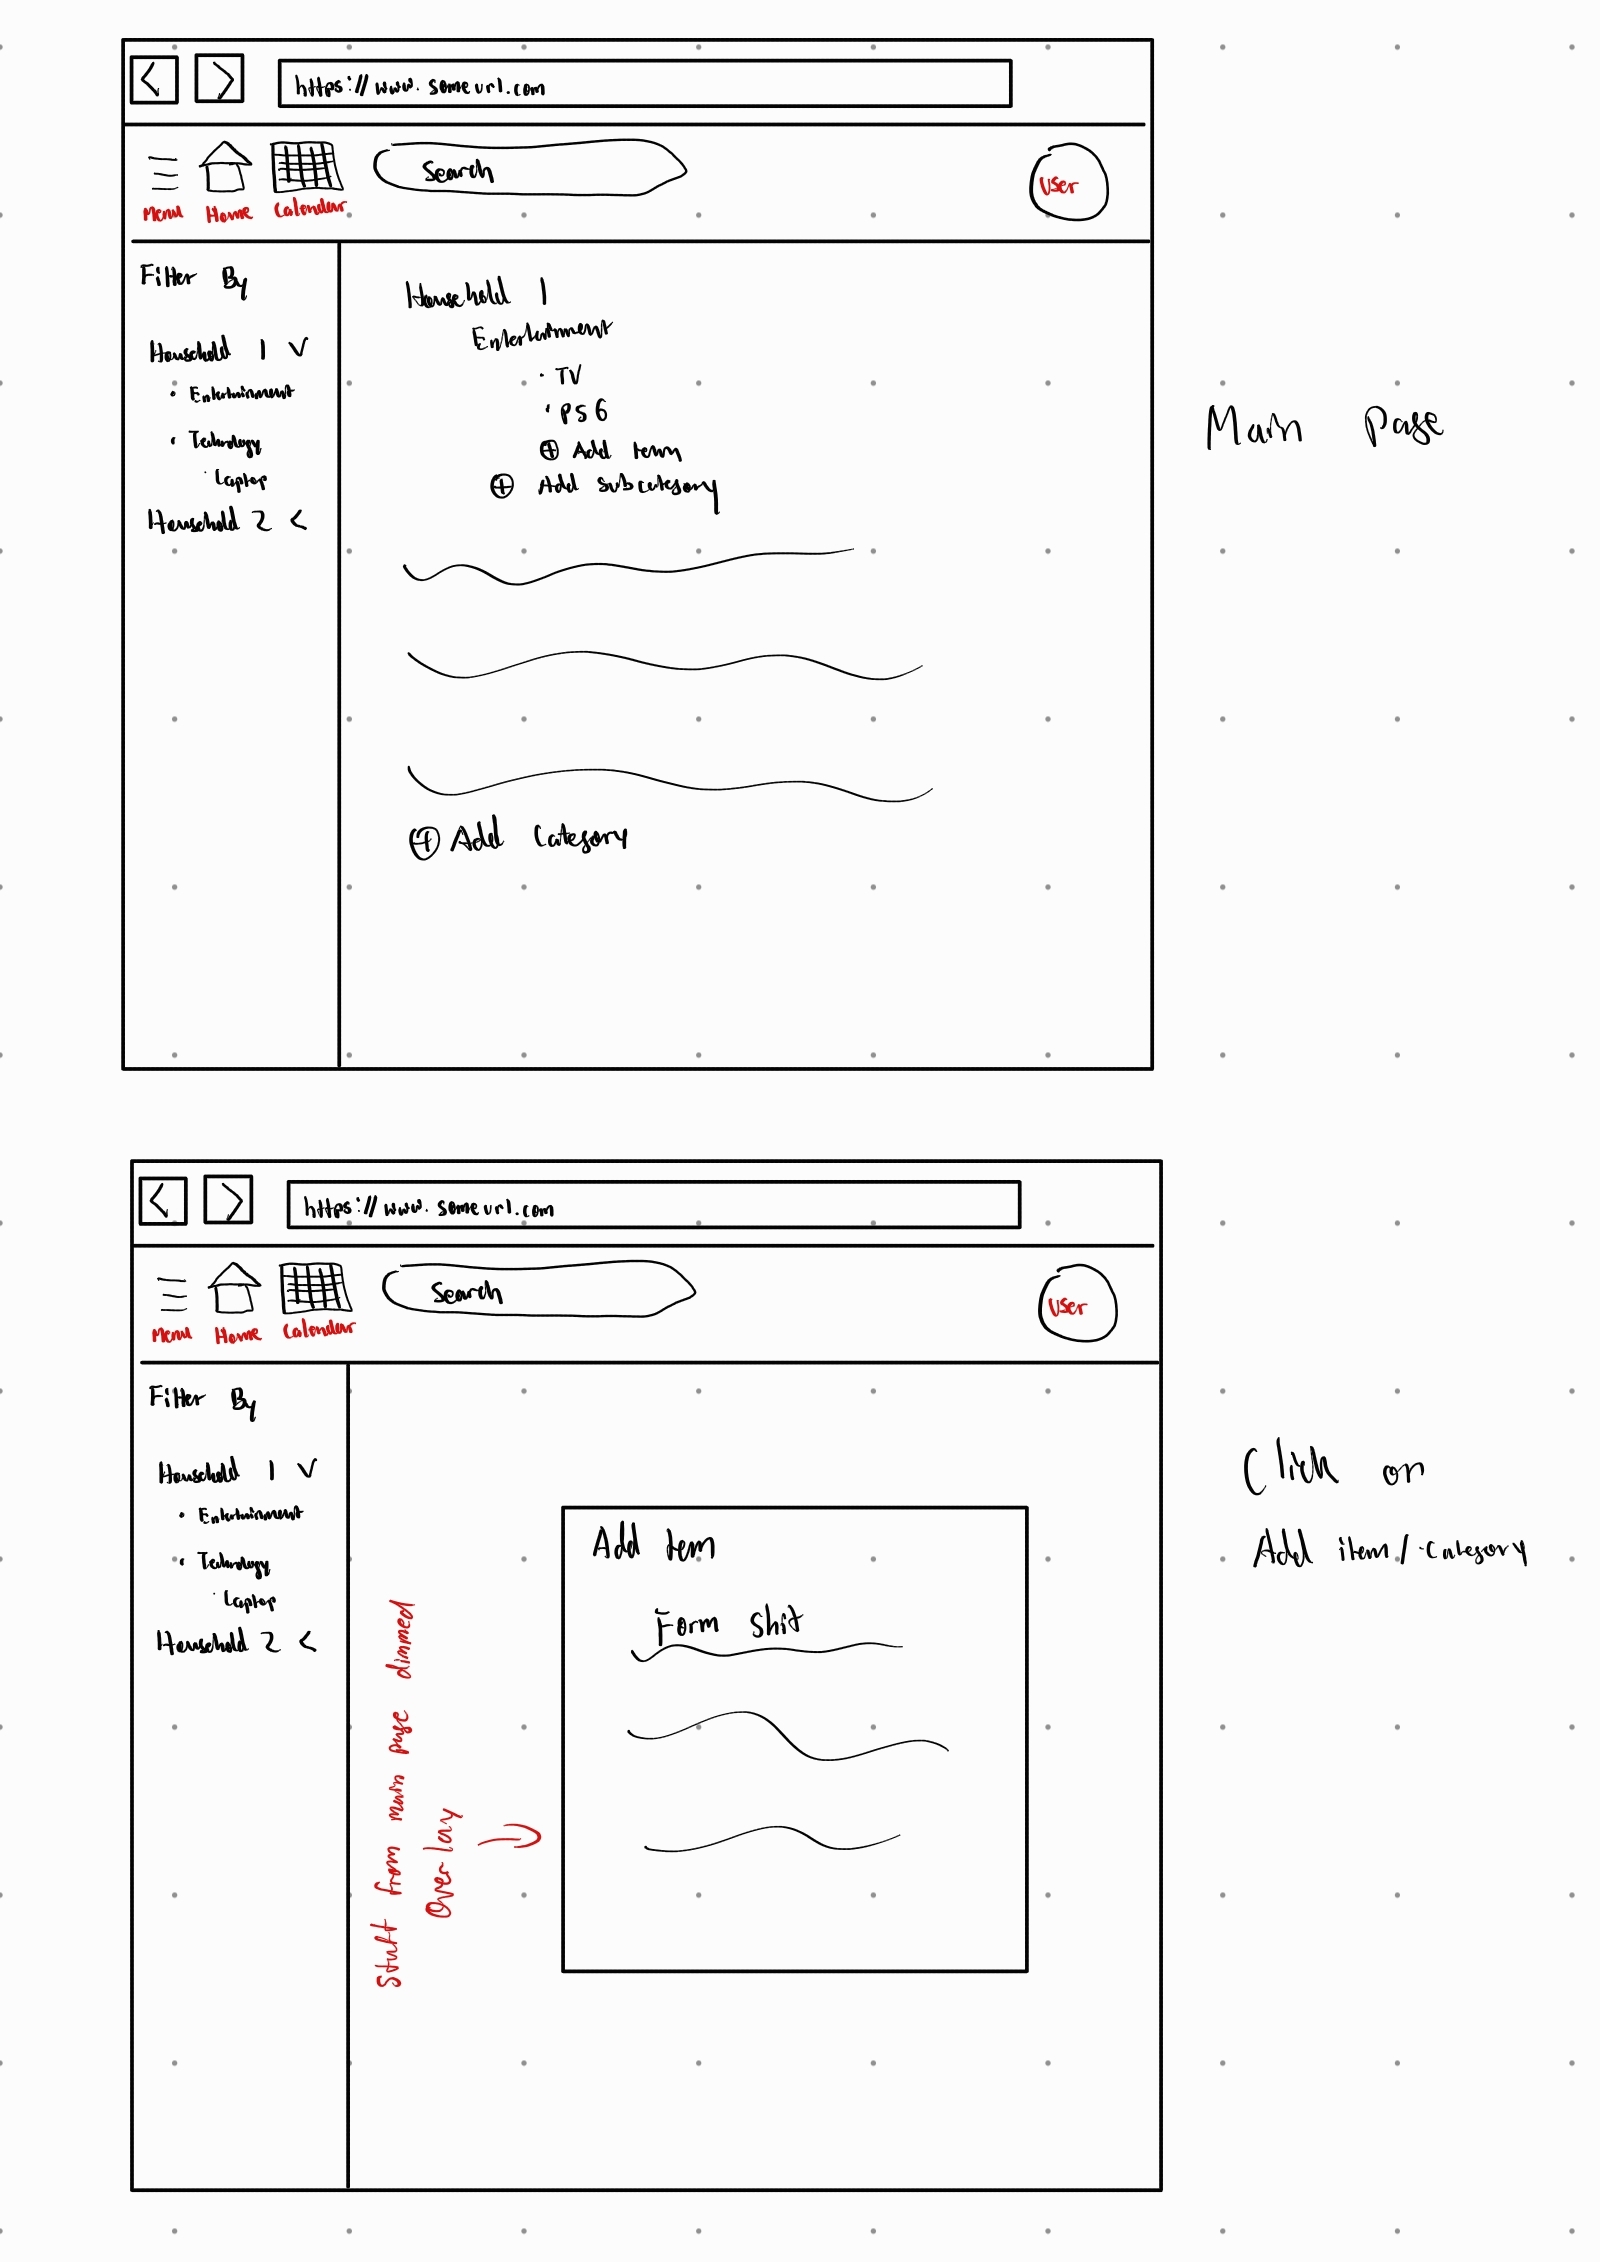 https://www.someurl.com
Search
User
Menu Home Calendar
Filter By
Household 1 v
• Entertainment
• Technology
· Laptop
Household 2 <
Household 1
Entertainment
· TV
· PS6
+ Add item
+ Add subcategory
+ Add Category
Main Page
https://www.someurl.com
Search
User
Menu Home Calendar
Filter By
Household 1 v
• Entertainment
• Technology
· Laptop
Household 2 <
Stuff from main page dimmed
Overlay
Add item
Form Shit
Click on
Add item/category